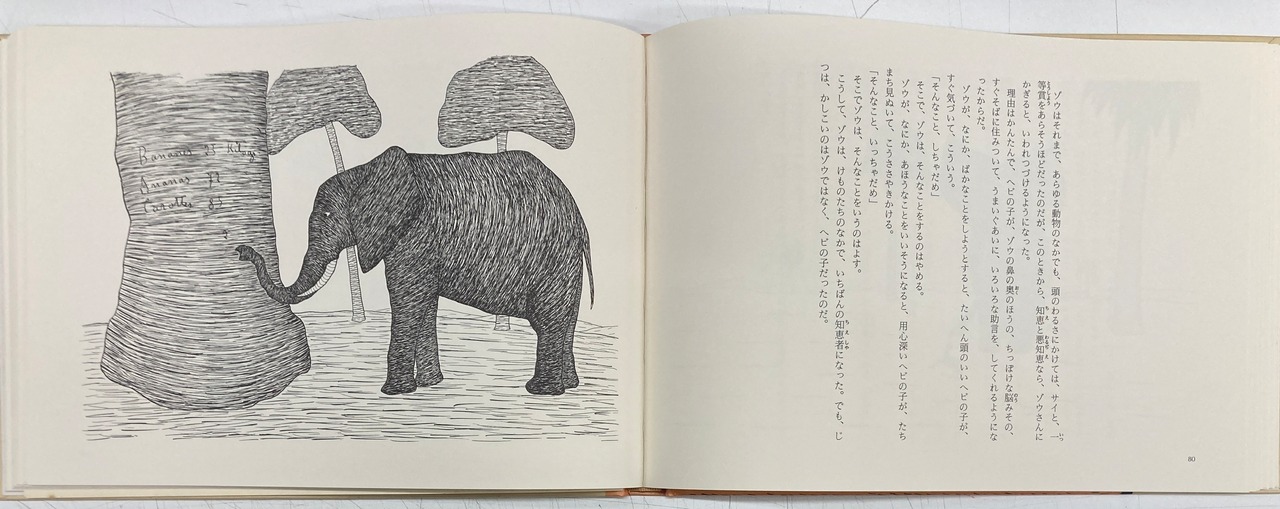 ゾウはそれまで、あらゆる動物のなかでも、頭のわるさにかけては、サイと、一
等賞をあらそうほどだったのだが、このときから、知恵と悪知恵なら、ゾウさんに
かぎると、いわれつづけるようになった。
理由はかんたんで、ヘビの子が、ゾウの鼻の奥のほうの、ちっぽけな脳みその、
すぐそばに住みついて、うまいぐあいに、いろいろな助言を、してくれるようにな
ったからだ。
ゾウが、なにか、ばかなことをしようとすると、たいへん頭のいいヘビの子が、
すぐ気づいて、こういう。
「そんなこと、しちゃだめ」
そこで、ゾウは、そんなことをするのはやめる。
ゾウが、なにか、あほうなことをいいそうになると、用心深いヘビの子が、たち
まち見ぬいて、こうささやきかける。
「そんなこと、いっちゃだめ」
そこでゾウは、そんなことをいうのはよす。
こうして、ゾウは、けものたちのなかで、いちばんの知恵者になった。でも、じ
つは、かしこいのはゾウではなく、ヘビの子だったのだ。
80
Bananes
Ananas
Carottes